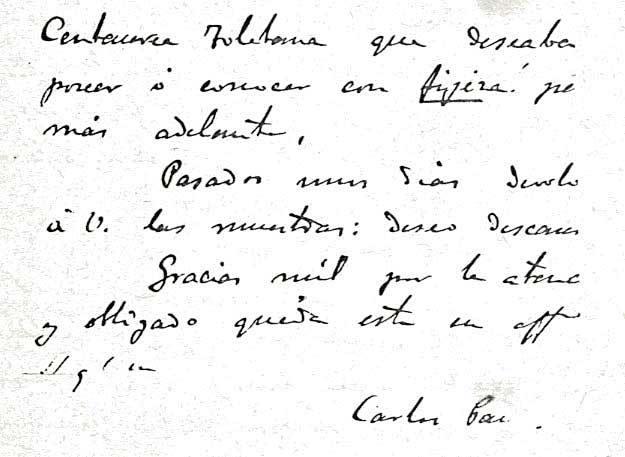 Centaurea Toletana que deseaba
poseer ó conocer con fijeza!
más adelante,
Pasados unos días devolv
á V. las muestras: deseo descans
Gracias mil por la atenc
y obligado queda este su aff
Carlos Pau.